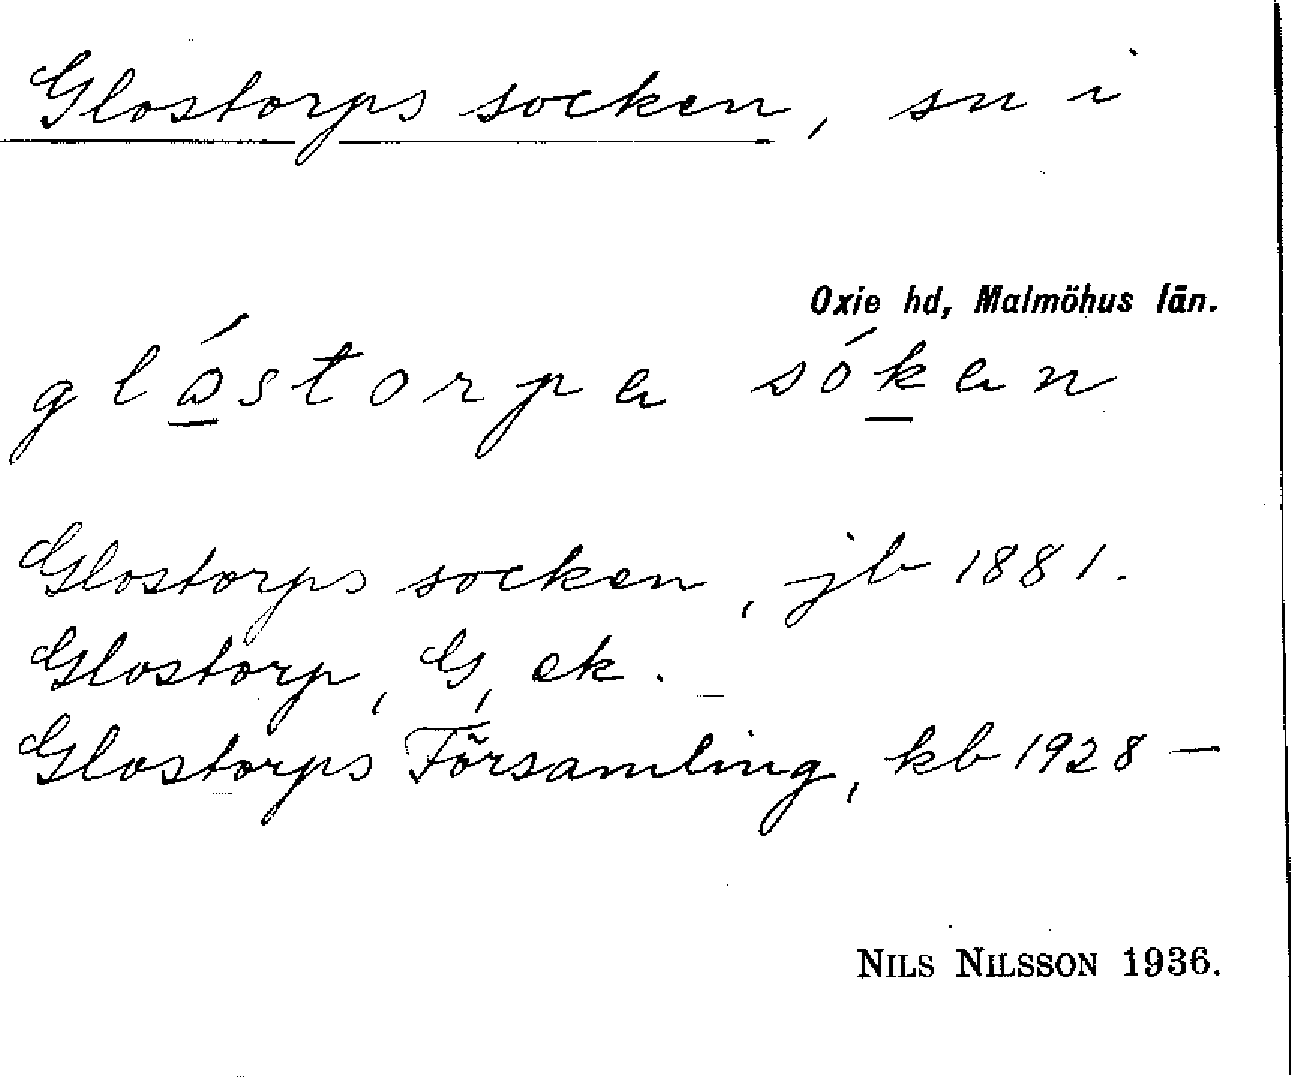 Glostorps socken, sn i
Oxie hd, Malmöhus län.
glóstorpa sókan
Glostorps socken, jb 1881.
Glostorp, G, ek.
Glostorps Församling, kb 1928 —
NILS NILSSON 1936.